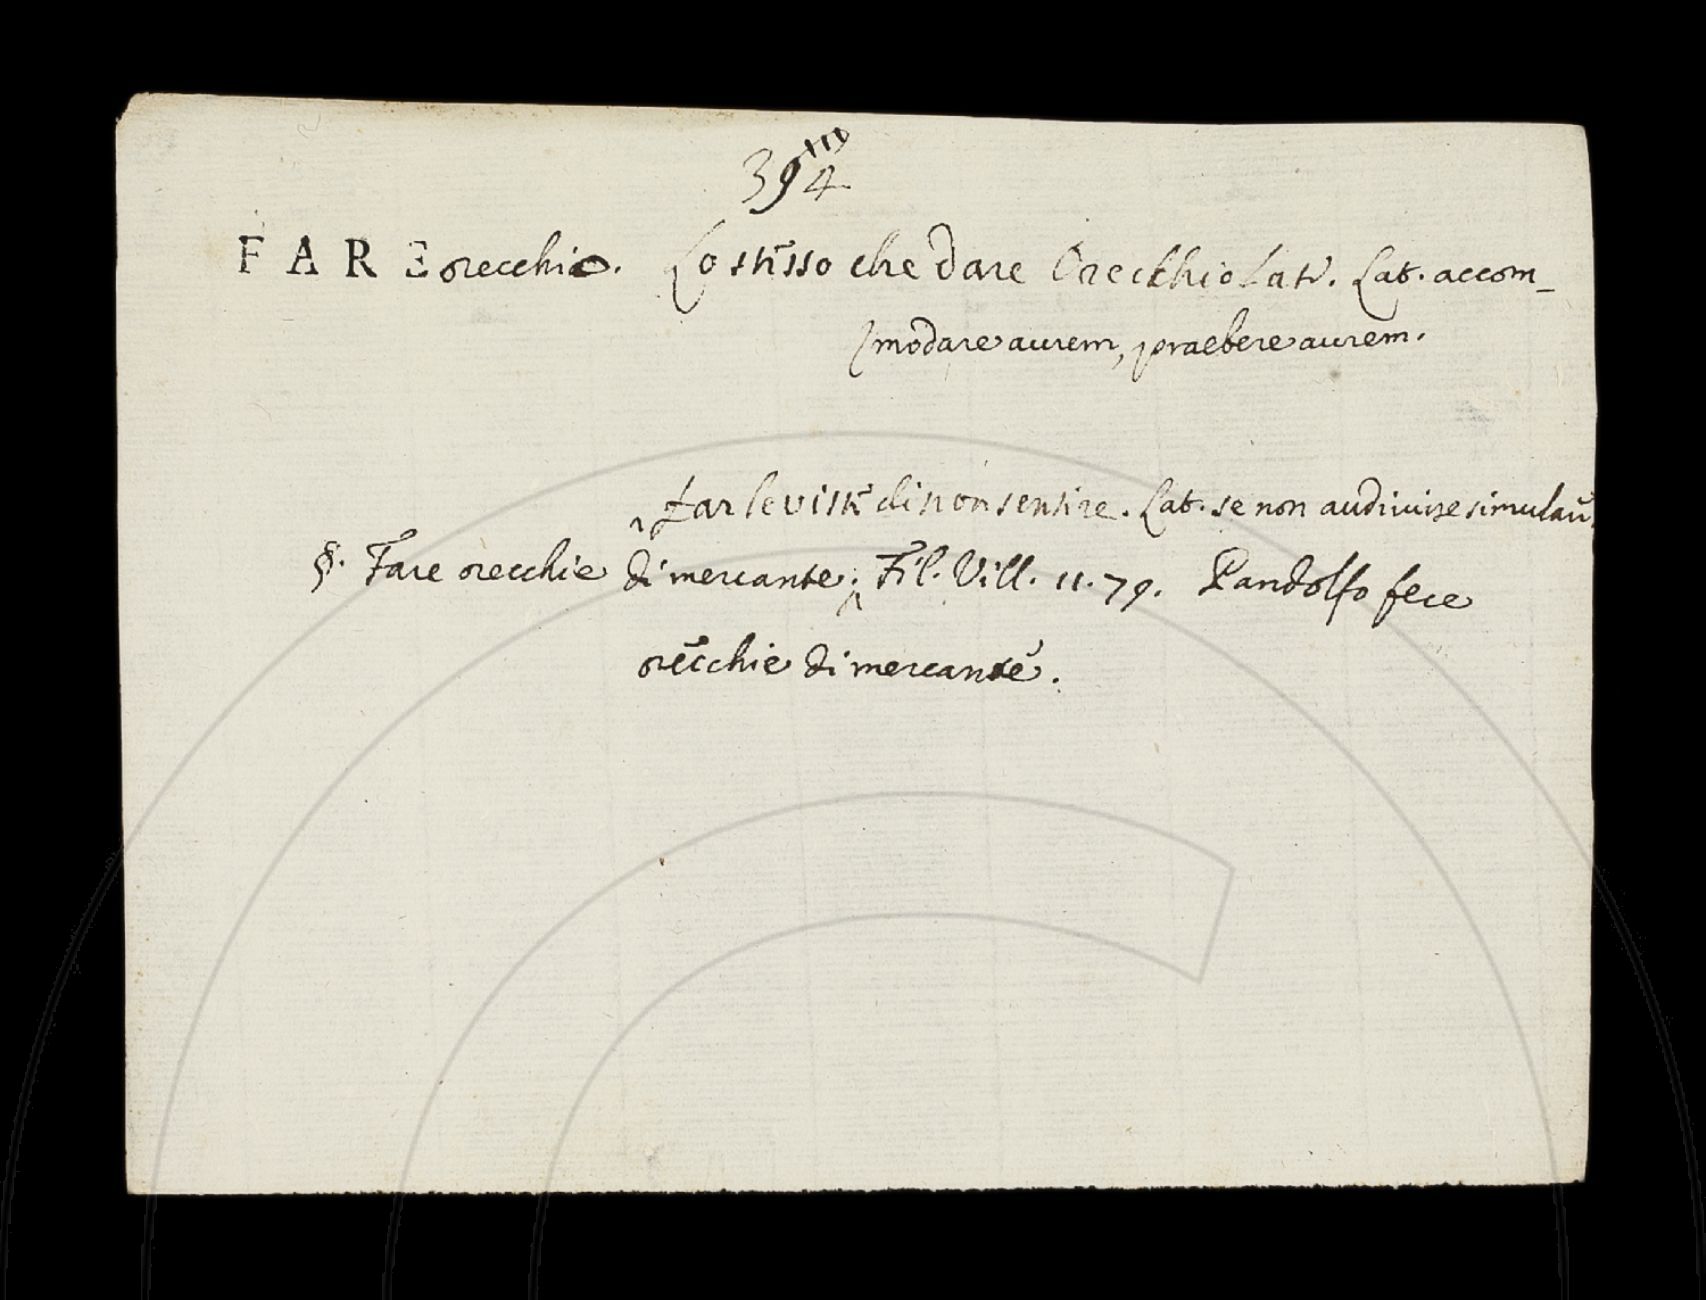 394
FARE orecchio. Lo stesso che dare Orecchio Lat. accom-
modare aurem, praebere aurem.
far le viste di non sentire. Lat. se non audivisse simulav.
§. Fare orecchie di mercante; Fil. Vill. 11. 79. Pandolfo fece
orecchie di mercante.